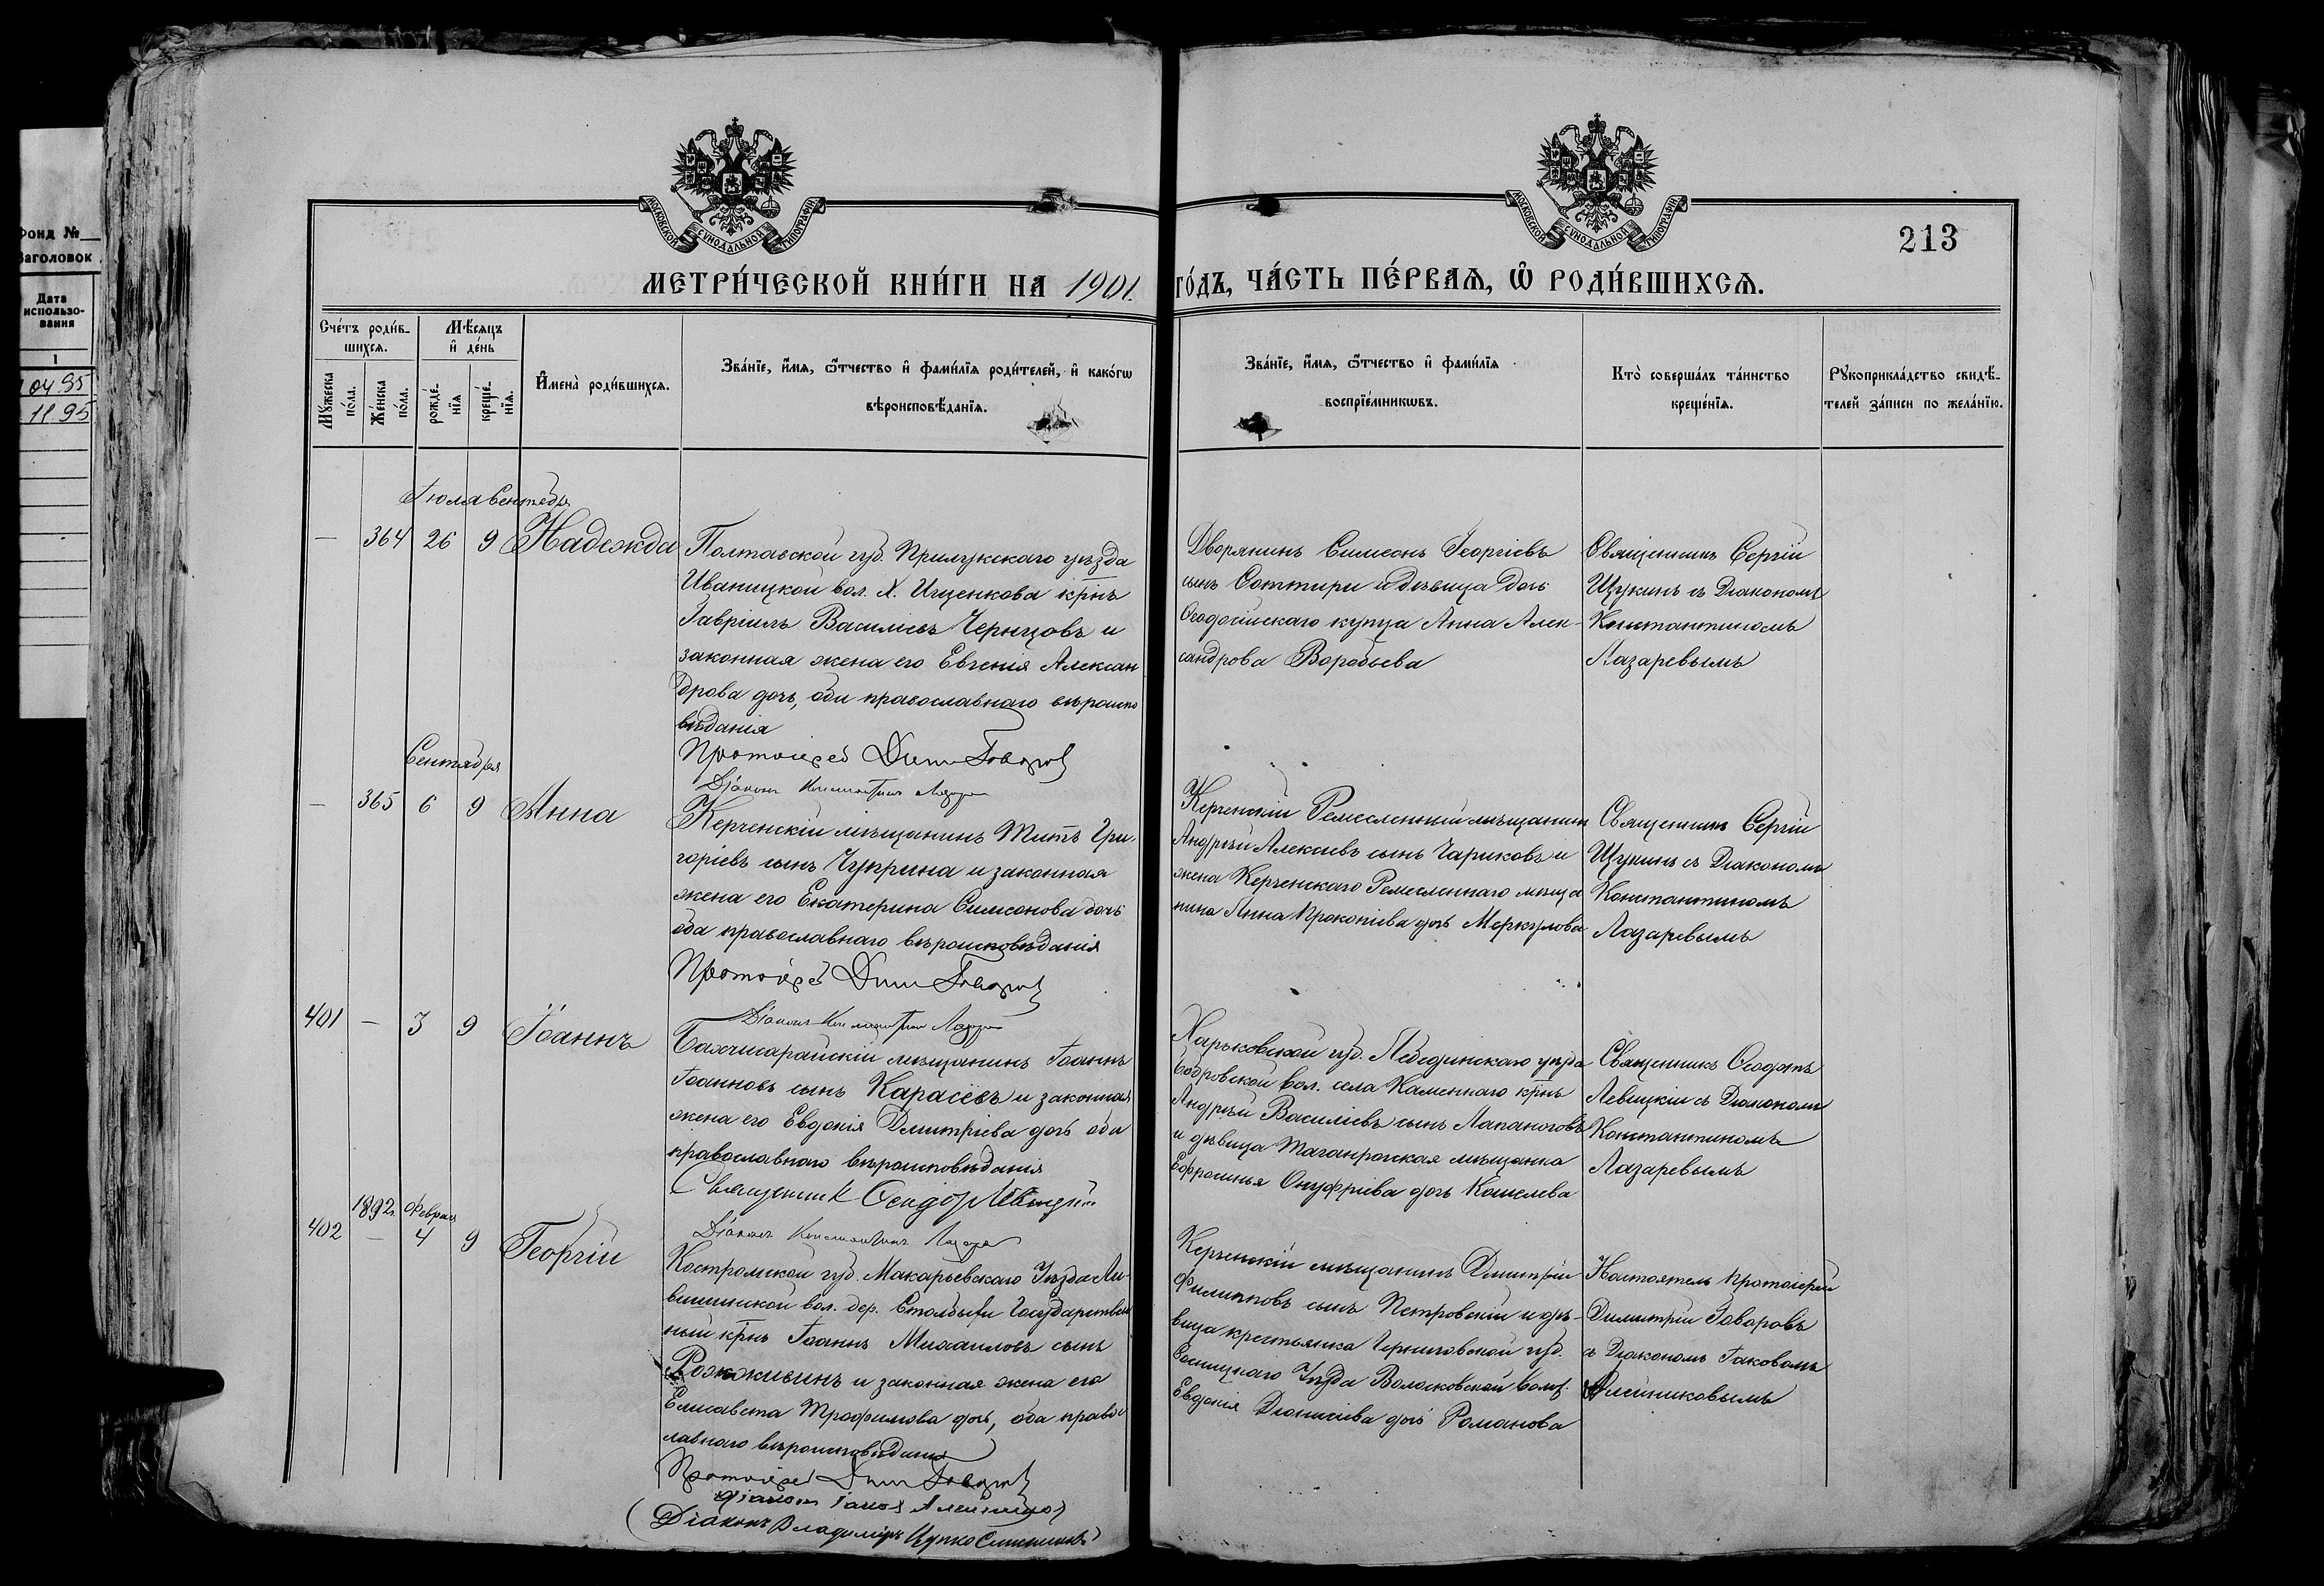 Фонд №
Заголовок
Дата
использо-
вания
1
04.95
11.95
МОСКОВСКОЙ СѴНОДАЛЬНОЙ ТИПОГРАФІИ
МОСКОВСКОЙ СѴНОДАЛЬНОЙ ТИПОГРАФІИ
213
МЕТРИ́ЧЕСКОЙ КНИ́ГИ НА 1901. ГО́ДЪ, ЧА́СТЬ ПЕ́РВАѦ, Ѡ РОДИ́ВШИХСѦ.
Сче́тъ роди́в-
шихсѧ.
Мꙋжеска
по́ла.
Же́нска
по́ла.
Мѣ́сѧцъ
и҆ де́нь
рожде́-
нїѧ
креще́-
нїѧ.
И҆мена̀ роди́вшихсѧ.
Зва́нїе, и҆́мѧ, ѻ҆́тчество и҆ фами́лїѧ роди́телей, и҆ како́гѡ
вѣроисповѣ́данїѧ.
Зва́нїе, и҆́мѧ, ѻ҆́тчество и҆ фами́лїѧ
воспрїе́мникѡвъ.
Кто̀ соверша́лъ та́инство
креще́нїѧ.
Рꙋкоприкла́дство свидѣ́-
телей за́писи по жела́нїю.
Іюля Сентября
— 364 26 9 Надежда
Полтавской губ. Прилукскаго уѣзда
Иваницкой вол. х. Ищенкова крнъ
Гавріилъ Василіевъ Чернцовъ и
законная жена его Евгенія Алексан
дрова дочь, оби православнаго вѣроиспо
вѣданія
Протоіерей Дим Говоров
Діаконъ Константинъ Лазарев
Дворянинъ Симеонъ Георгіевъ
сынъ Соттири и дѣвица дочь
Ѳеодосійскаго купца Анна Алек-
сандрова Воробьева
Священникъ Сергій
Щукинъ съ Діакономъ
Константиномъ
Лазаревымъ
Сентября
— 365 6 9 Анна
Керченскій мѣщанинъ Титъ Гри-
горіевъ сынъ Чуприна и законная
жена его Екатерина Симеонова дочь
оба православнаго вѣроисповѣданія
Протоіерей Дим Говоров
Діаконъ Константин Лазарев
Керченскій Ремесленный мѣщанин
Андрей Алексѣевъ сынъ Чариковъ и
жена Керченскаго Ремесленнаго мѣща
нина Анна Прокопіева дочь Меркулова
Священникъ Сергій
Щукинъ съ Діакономъ
Константиномъ
Лазаревымъ
401 — 3 9 Іоаннъ
Бахчисарайскій мѣщанинъ Іоаннъ
Іоанновъ сынъ Карасёвъ и законная
жена его Евдокія Дмитріева дочь оби
православнаго вѣроисповѣданія
Священник Ѳеодор Левицкій
Діаконъ Константинъ Лазарев
Харьковской губ. Лебединскаго уѣзда
Бобровской вол. села Каменнаго крнъ
Андрей Василіевъ сынъ Лапаноговъ
и дѣвица Таганрогская мѣщанка
Ефросинья Онуфріева дочь Кошелева
Священникъ Ѳеодоръ
Левицкій съ Діакономъ
Константиномъ
Лазаревымъ
1892г. Феврал
402 — 4 9 Георгій
Костромской губ. Макарьевскаго Уѣзда
вол. дер. Государствен
ный крнъ Іоаннъ Михаиловъ сынъ
и законная жена его
Елисавета Трофимова дочь, оба правос
лавнаго вѣроисповѣданія
Протоіерей Дим Говоров
Діаконъ Іаков Алейников
(Діаконъ Владиміръ)
Керченскій мѣщанинъ Димитрій
Филипповъ сынъ Петровскій и дѣ-
вица крестьянка Черниговской губ.
Сосницкаго Уѣзда Волосковской волос.
Евдокія Діонисіева дочь Романова
Настоятель Протоіерей
Димитрій Говоровъ
съ Діакономъ Іаковомъ
Алейниковымъ